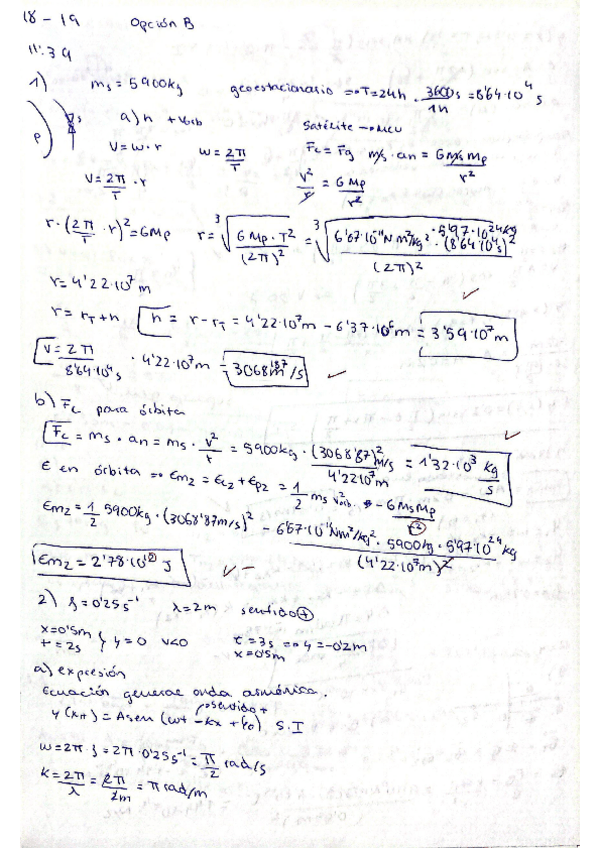 18-19 Opción B
11:39
1) ms = 5900kg geoestacionario → T=24h · 3600s/1h = 8'64·10⁴ s
P s a) h + vorb Satélite → MCU
V = w · r w = 2π/T Fc = Fg ms · an = G Ms Mp / r²
V = 2π/T · r v²/r = G Mp / r²
r · (2π/T · r)² = GMp r = ³√(G Mp · T² / (2π)²) = ³√(6'67·10⁻¹¹ N m²/kg² · 5'97·10²⁴ kg · (8'64·10⁴s)² / (2π)²)
r = 4'22·10⁷ m
r = rT + h h = r - rT = 4'22·10⁷m - 6'37·10⁶m = 3'59·10⁷ m
V = 2π / 8'64·10⁴s · 4'22·10⁷m = 3068'87 m/s
b) Fc para órbita
Fc = ms · an = ms · v²/r = 5900kg · (3068'87)² m/s / 4'22·10⁷ m = 1'32·10³ kg/s
E en órbita → Em2 = Ec2 + Ep2 = 1/2 ms v²orb. - G Ms Mp / r²
Em2 = 1/2 5900kg · (3068'87m/s)² - 6'67·10⁻¹¹ Nm²/kg² · 5900kg · 5'97·10²⁴ kg / (4'22·10⁷m)²
Em2 = 2'78·10¹⁰ J
2) f = 0'25 s⁻¹ λ = 2m sentido +
x = 0'5m t = 2s } y = 0 v<0 t = 3s → y = -0'2m
x = 0'5m
a) expresión
Ecuación general onda armónica.
sentido +
y(x,t) = A sen (wt - kx + φ0) S.I
w = 2π · f = 2π · 0'25 s⁻¹ = π/2 rad/s
k = 2π/λ = 2π/2m = π rad/m